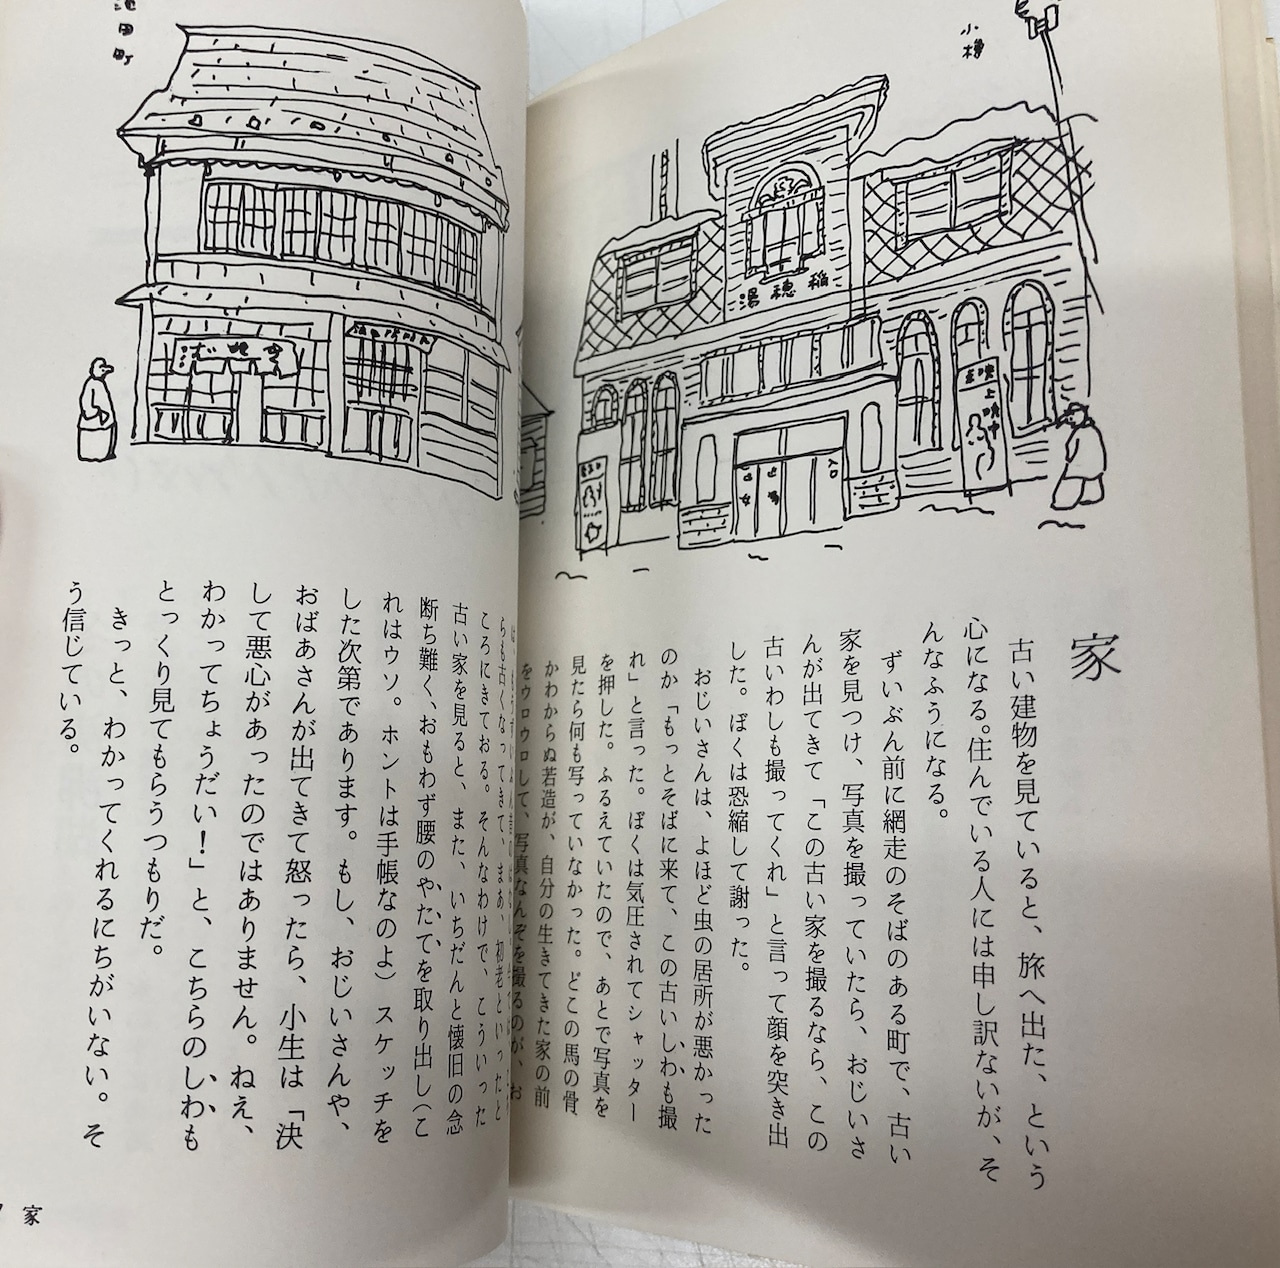 小樽
稲穂湯
入口
家
古い建物を見ていると、旅へ出た、という
心になる。住んでいる人には申し訳ないが、そ
んなふうになる。
ずいぶん前に網走のそばのある町で、古い
家を見つけ、写真を撮っていたら、おじいさ
んが出てきて「この古い家を撮るなら、この
古いわしも撮ってくれ」と言って顔を突き出
した。ぼくは恐縮して謝った。
おじいさんは、よほど虫の居所が悪かった
のか「もっとそばに来て、この古いしわも撮
れ」と言った。ぼくは気圧されてシャッター
を押した。ふるえていたので、あとで写真を
見たら何も写っていなかった。どこの馬の骨
かわからぬ若造が、自分の生きてきた家の前
をウロウロして、写真なんぞを撮るのが、お
池田町
らも古くなってきて、まあ、初老といったと
ころにきておる。そんなわけで、こういった
古い家を見ると、また、いちだんと懐旧の念
断ち難く、おもわず腰のやたてを取り出し(こ
れはウソ。ホントは手帳なのよ)スケッチを
した次第であります。もし、おじいさんや、
おばあさんが出てきて怒ったら、小生は「決
して悪心があったのではありません。ねえ、
わかってちょうだい！」と、こちらのしわも
とっくり見てもらうつもりだ。
きっと、わかってくれるにちがいない。そ
う信じている。
家